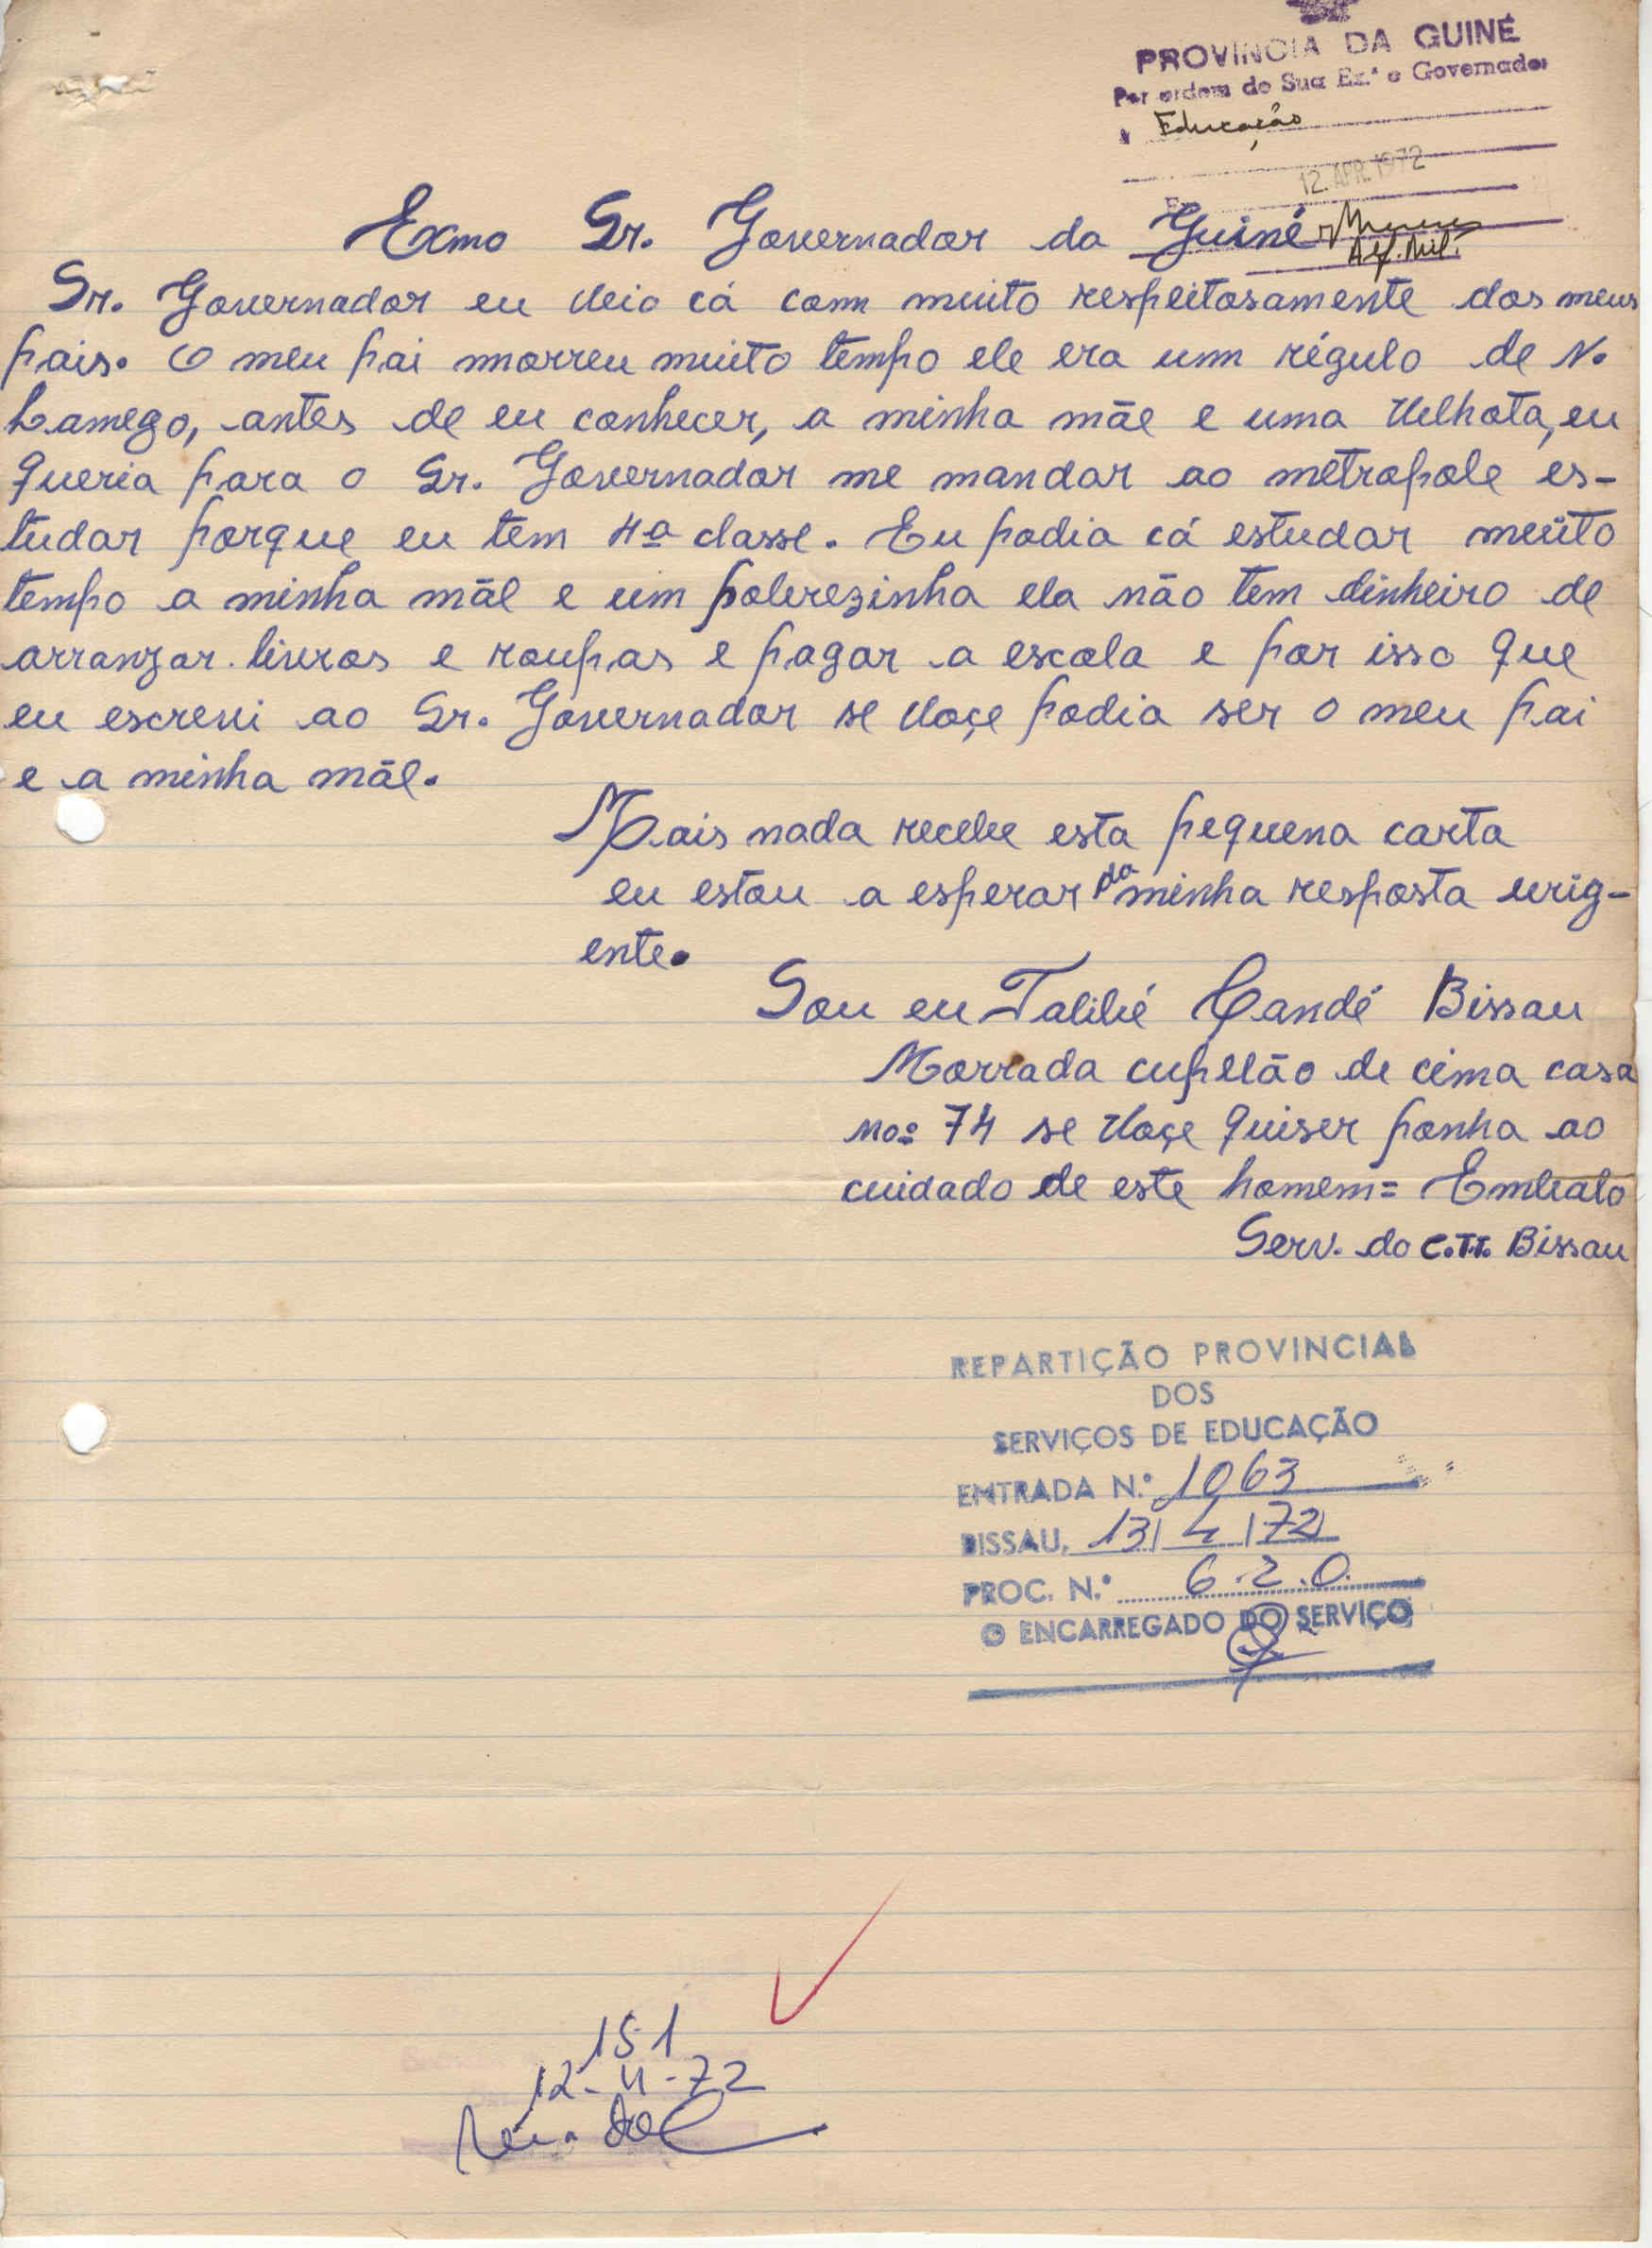 PROVÍNCIA DA GUINÉ
Por ordem de Sua Ex.ª o Governador
à Educação
12. APR. 1972
Alf. Mil.
Exmo Sr. Governador da Guiné
Sr. Governador eu veio cá com muito respeitosamente dos meus
pais. O meu pai morreu muito tempo ele era um régulo de N.
Lamego, antes de eu conhecer, a minha mãe e uma velhota, eu
queria para o Sr. Governador me mandar ao metropole es-
tudar porque eu tem 4ª classe. Eu podia cá estudar muito
tempo a minha mãe e um pobrezinha ela não tem dinheiro de
arranzar livros e roupas e pagar a escola e por isso que
eu escrevi ao Sr. Governador se voçe podia ser o meu pai
e a minha mãe.
Mais nada recebe esta pequena carta
eu estou a esperar da minha resposta urig-
ente.
Sou eu Talibé Candé Bissau
Morrada cupelão de cima casa
no: 74 se voçe quiser ponha ao
cuidado de este homem= Embalo
Serv. do C.T.T. Bissau
REPARTIÇÃO PROVINCIAL
DOS
SERVIÇOS DE EDUCAÇÃO
ENTRADA N.º 1063
BISSAU, 13/4/72
PROC. N.º 6.2.0.
O ENCARREGADO DO SERVIÇO
151
12-4-72